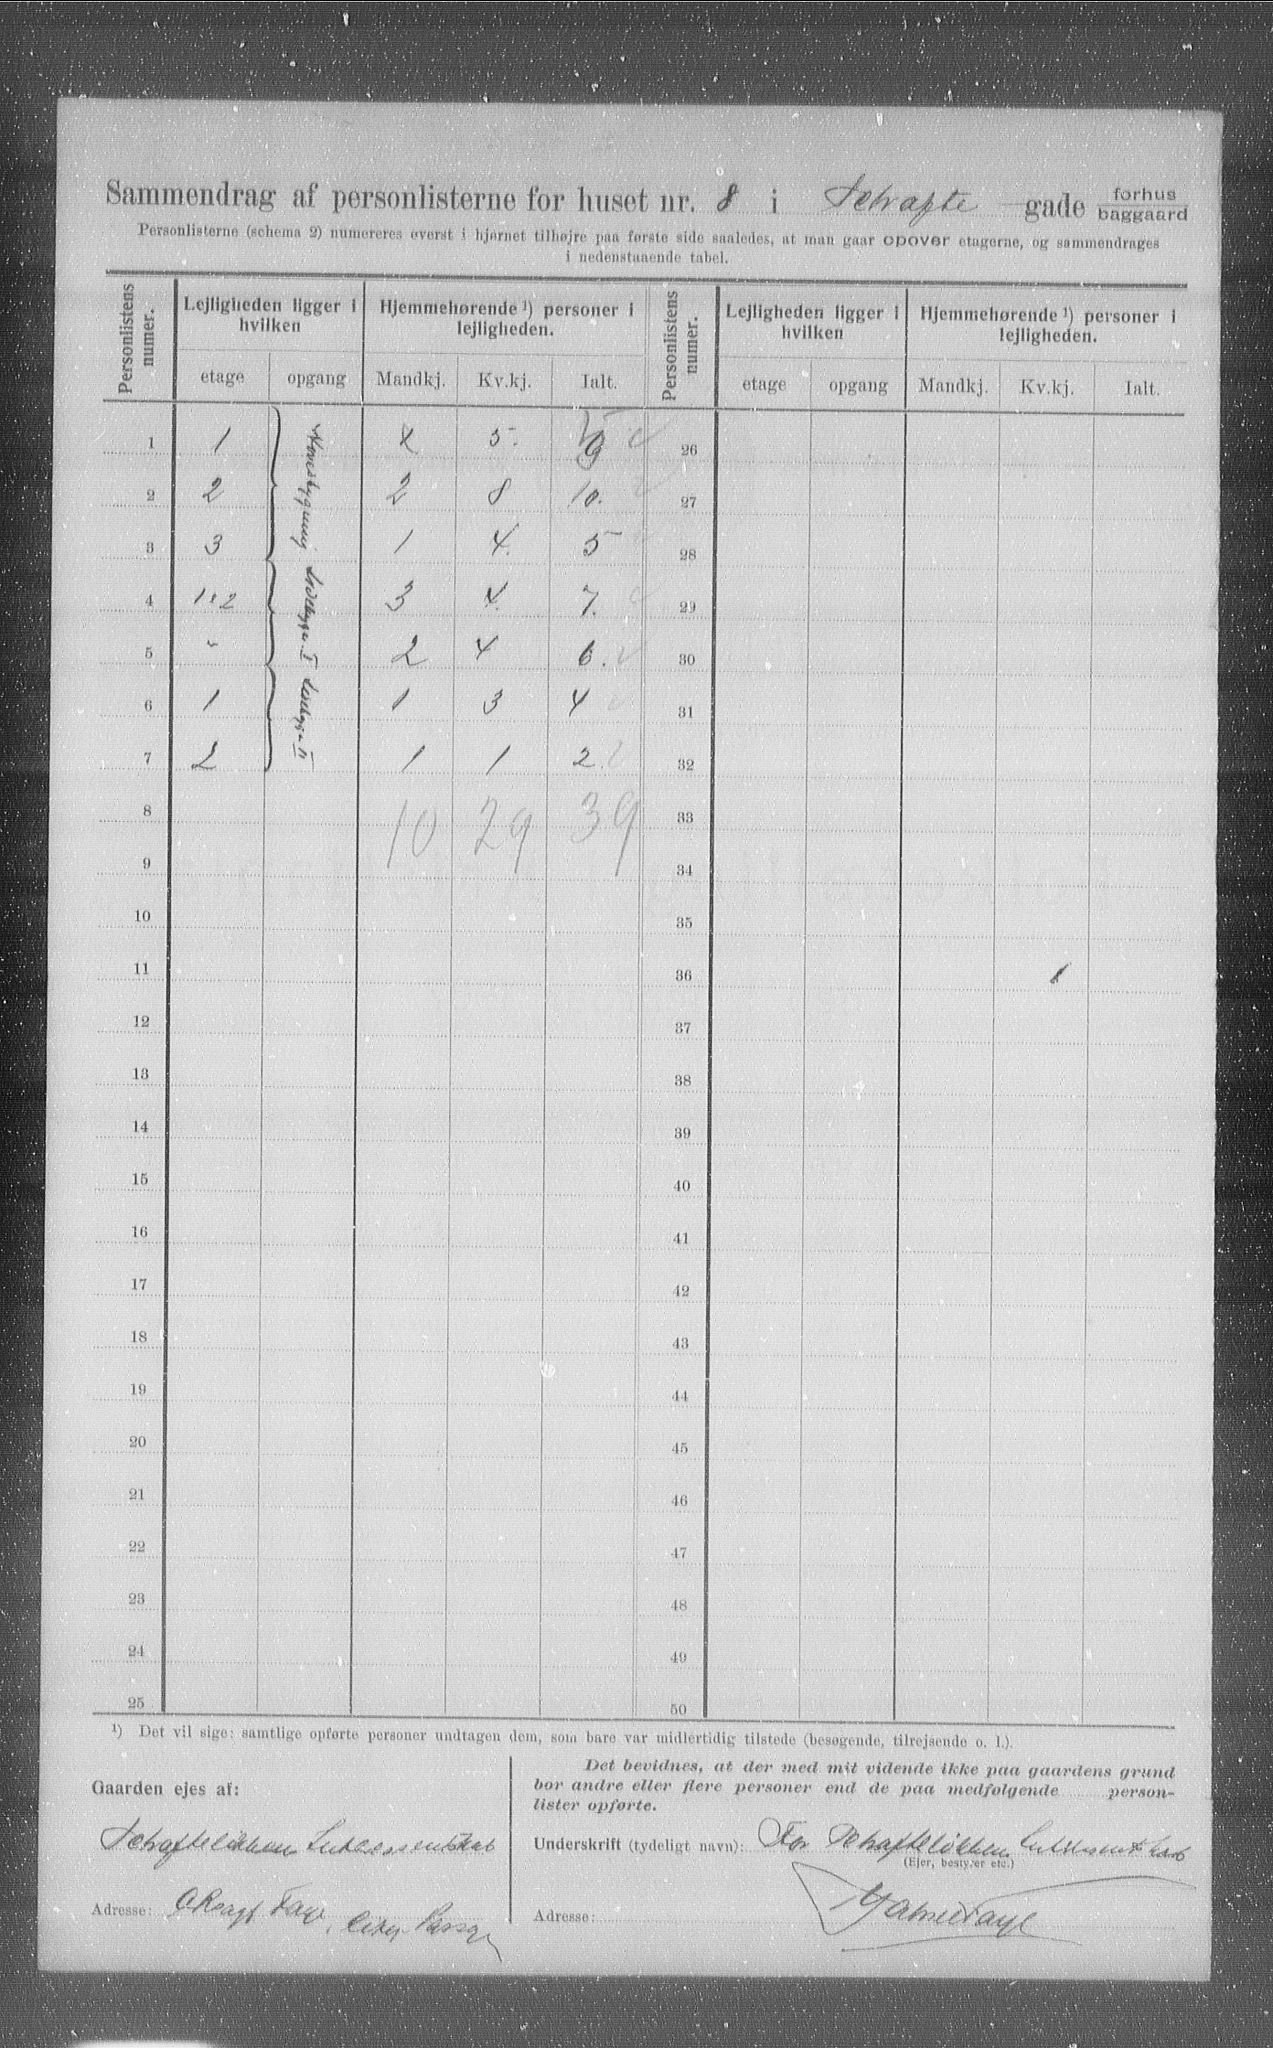 Sammendrag af personlisterne for huset nr. 8 i Schafte gade forhus
baggaard
Personlisterne (schema 2) numereres øverst i hjørnet tilhøjre paa første side saaledes, at man gaar opover etagerne, og sammendrages
i nedenstaaende tabel.
Personlistens numer. Lejligheden ligger i hvilken Hjemmehørende ¹) personer i lejligheden. Personlistens numer. Lejligheden ligger i hvilken Hjemmehørende ¹) personer i lejligheden.
etage opgang Mandkj. Kv.kj. Ialt. etage opgang Mandkj. Kv.kj. Ialt.
1 1 5. 26
2 2 2 8 10. 27
3 3 1 4. 5 28
4 1+2 3 4. 7. 29
5 " 2 4 6. 30
6 1 1 3 4 31
7 2 1 1 2 32
8 10 29 39 33
9 34
10 35
11 36
12 37
13 38
14 39
15 40
16 41
17 42
18 43
19 44
20 45
21 46
22 47
23 48
24 49
25 50
¹) Det vil sige: samtlige opførte personer undtagen dem, som bare var midlertidig tilstede (besøgende, tilrejsende o. l.).
Gaarden ejes af:
Adresse:
Det bevidnes, at der med mit vidende ikke paa gaardens grund
bor andre eller flere personer end de paa medfølgende person-
lister opførte.
Underskrift (tydeligt navn): For Schafteløkken
(Ejer, bestyrer etc.)
Adresse: